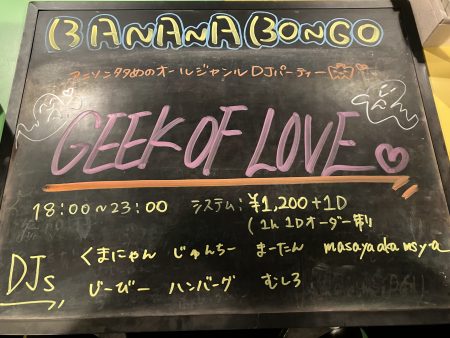 BANANA BONGO
アニソン多めのオールジャンルDJパーティー
GEEK OF LOVE
18:00~23:00 システム: ¥1,200+1D
(1h 1Dオーダー制)
DJs
くまにゃん じゅんちー まーたん masayaakamsya
びーびー ハンバーグ むしろ